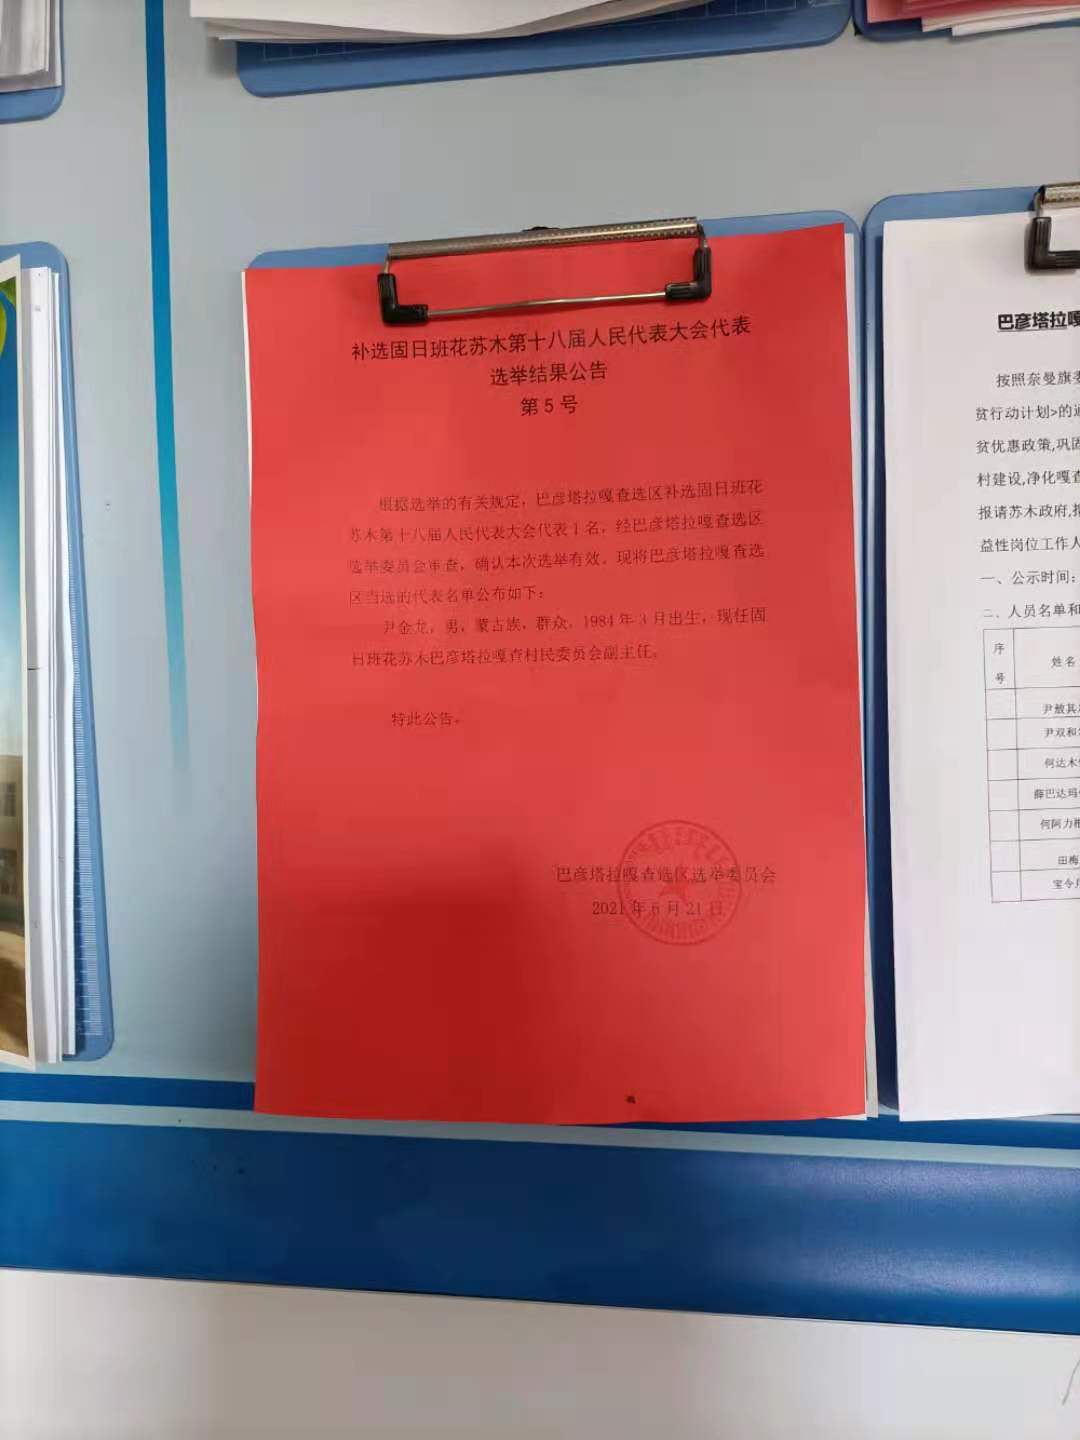 补选固日班花苏木第十八届人民代表大会代表
选举结果公告
第 5 号
根据选举的有关规定，巴彦塔拉嘎查选区补选固日班花
苏木第十八届人民代表大会代表1名，经巴彦塔拉嘎查选区
选举委员会审查，确认本次选举有效。现将巴彦塔拉嘎查选
区当选的代表名单公布如下：
尹金龙，男，蒙古族，群众，1984年3月出生，现任固
日班花苏木巴彦塔拉嘎查村民委员会副主任。
特此公告。
巴彦塔拉嘎查选区选举委员会
2021年6月21日
巴彦塔拉嘎
按照奈曼旗
贫行动计划>的通
贫优惠政策,巩固
村建设,净化嘎查
报请苏木政府,
益性岗位工作人
一、公示时间:
二、人员名单和
序号
姓名
尹敖其
尹双和
何达木
薛巴达玛
何阿力
田梅
宝令